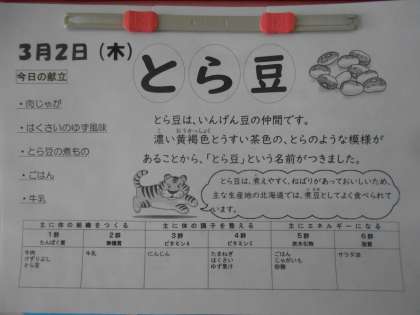 3月2日（木）
とら豆
今日の献立
・肉じゃが
・はくさいのゆず風味
・とら豆の煮もの
・ごはん
・牛乳
とら豆は、いんげん豆の仲間です。
濃い黄褐色とうすい茶色の、とらのような模様が
あることから、「とら豆」という名前がつきました。
とら豆は、煮えやすく、ねばりがあっておいしいため、
主な生産地の北海道では、煮豆としてよく食べられて
います。
主に体の組織をつくる 主に体の調子を整える 主にエネルギーになる
1群 2群 3群 4群 5群 6群
たんぱく質 無機質 ビタミンA ビタミンC 炭水化物 脂質
牛肉 牛乳 にんじん たまねぎ ごはん サラダ油
けずりぶし はくさい じゃがいも
とら豆 ゆず果汁 砂糖